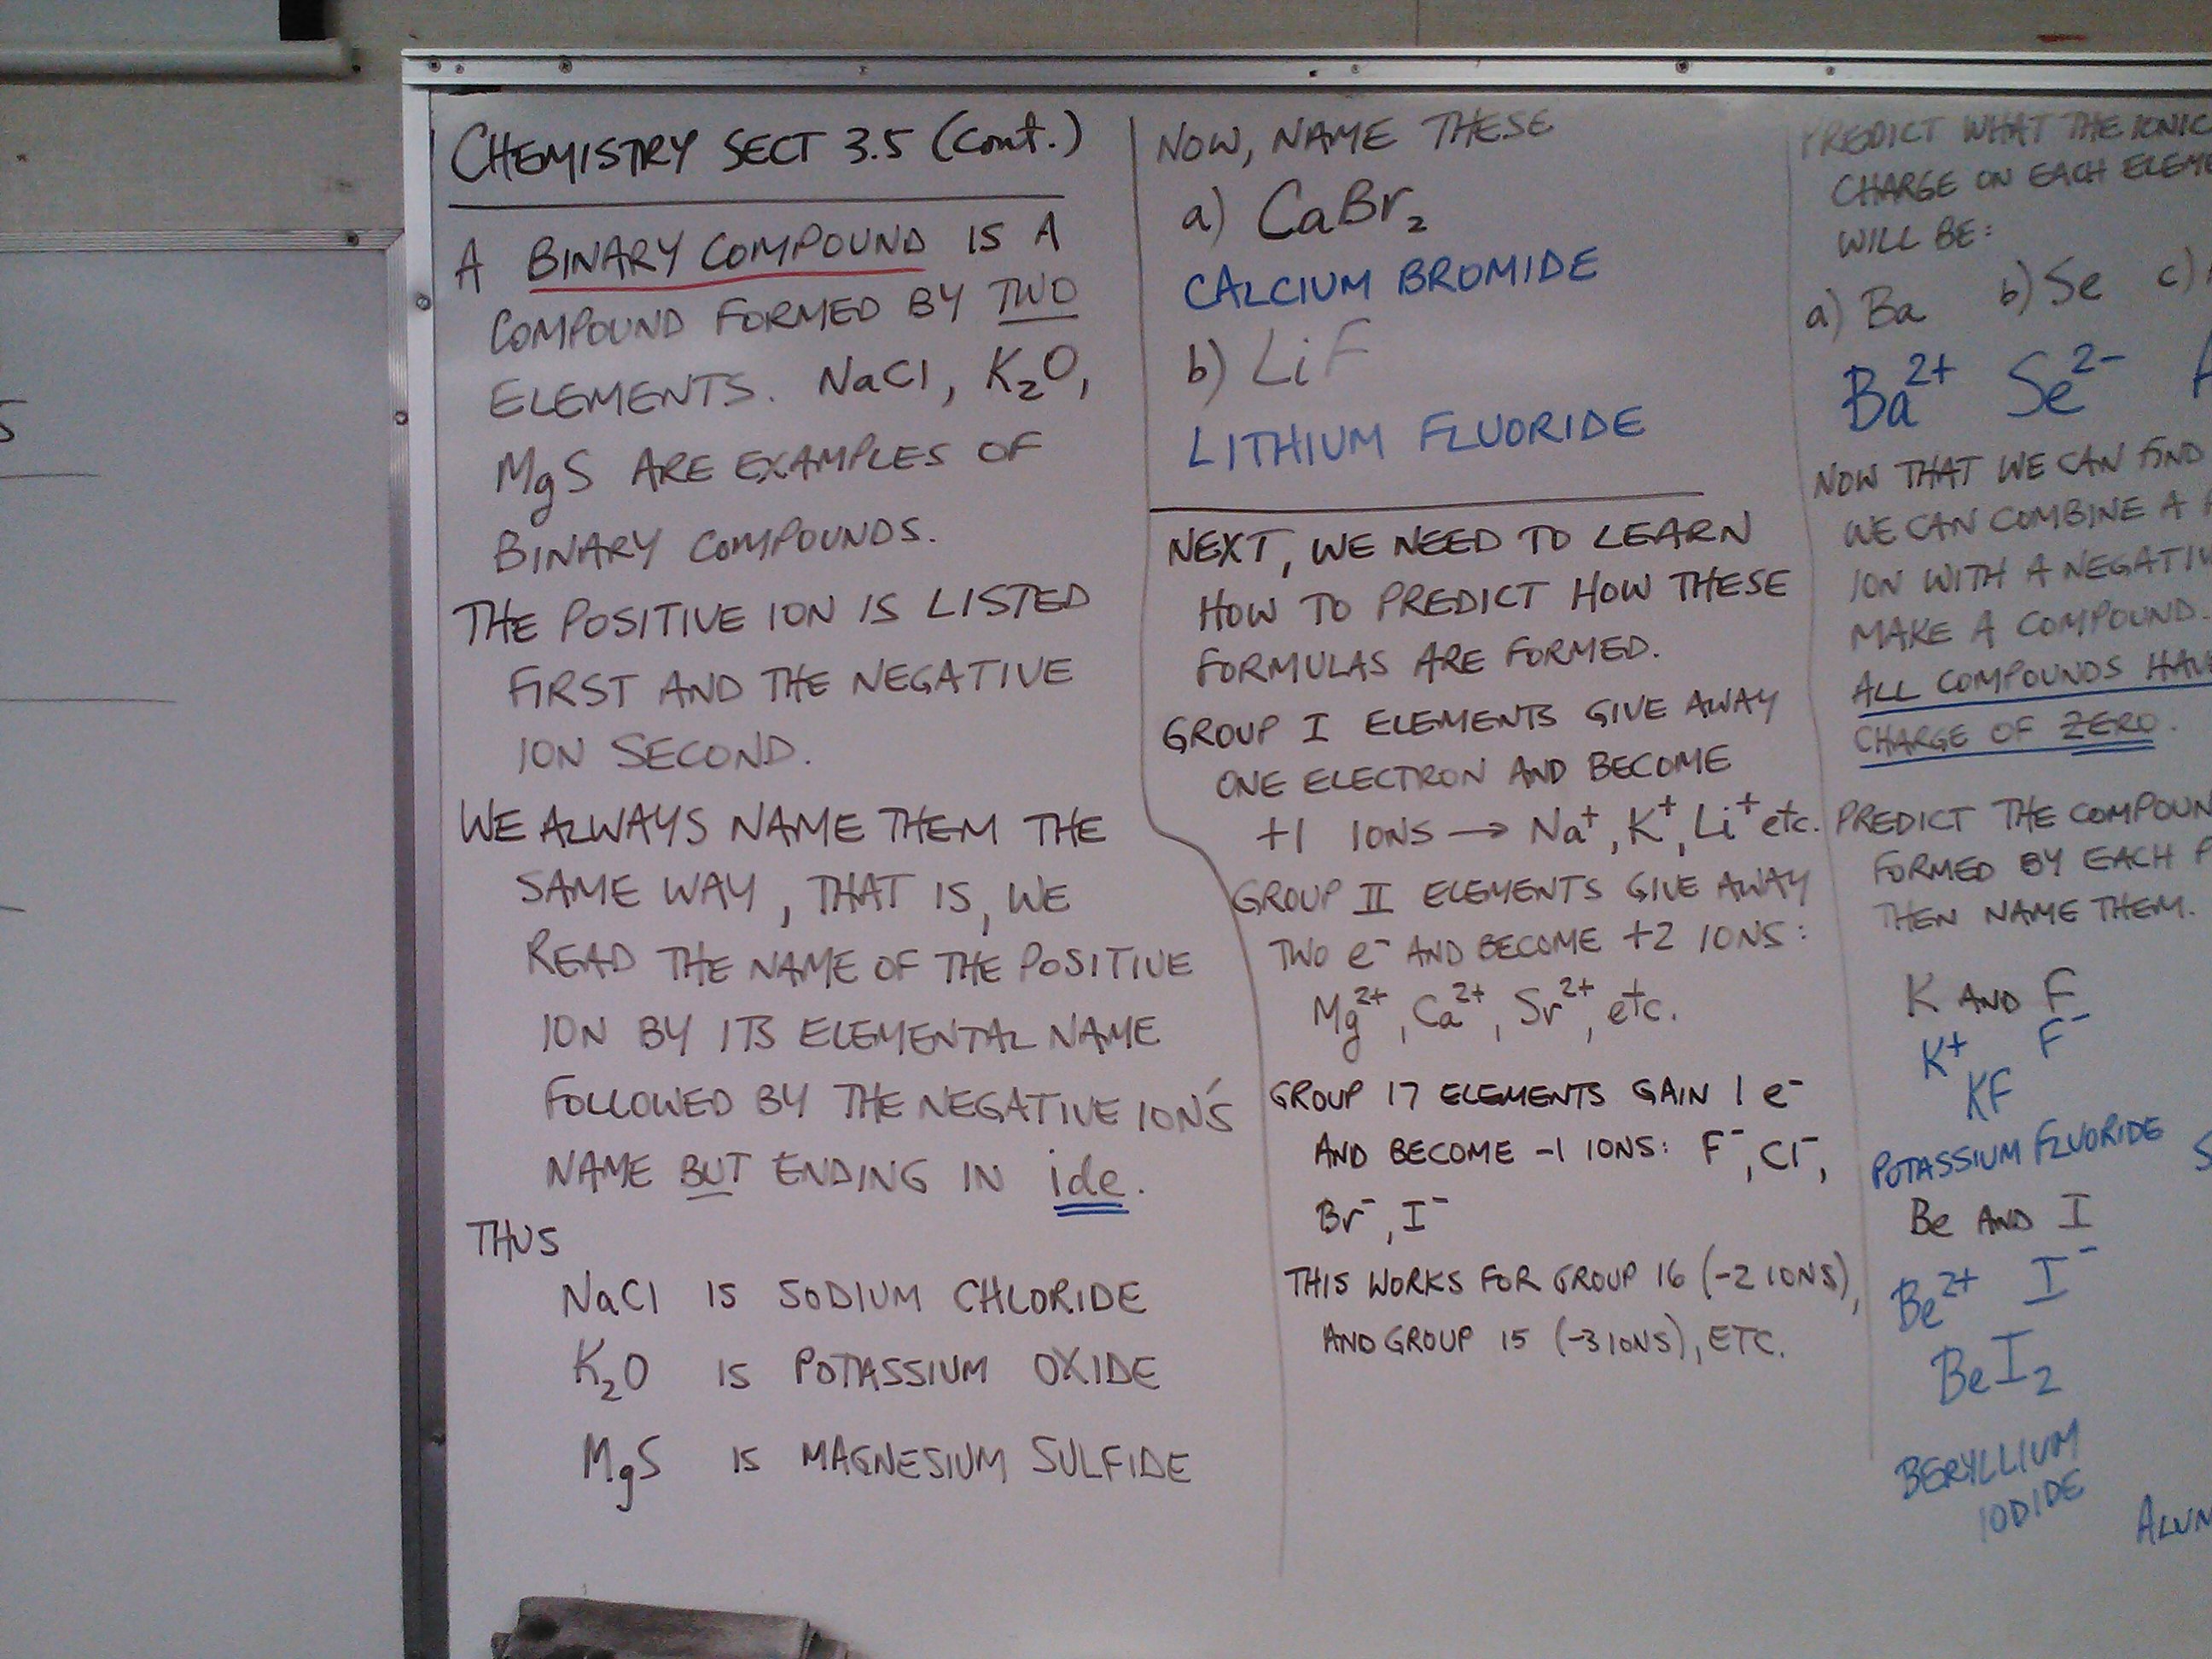 CHEMISTRY SECT 3.5 (Cont.)
A BINARY COMPOUND IS A
COMPOUND FORMED BY TWO
ELEMENTS. NaCl, K₂O,
MgS ARE EXAMPLES OF
BINARY COMPOUNDS.
THE POSITIVE ION IS LISTED
FIRST AND THE NEGATIVE
ION SECOND.
WE ALWAYS NAME THEM THE
SAME WAY, THAT IS, WE
READ THE NAME OF THE POSITIVE
ION BY ITS ELEMENTAL NAME
FOLLOWED BY THE NEGATIVE ION'S
NAME BUT ENDING IN ide.
THUS
NaCl IS SODIUM CHLORIDE
K₂O IS POTASSIUM OXIDE
MgS IS MAGNESIUM SULFIDE
NOW, NAME THESE
a) CaBr₂
CALCIUM BROMIDE
b) LiF
LITHIUM FLUORIDE
NEXT, WE NEED TO LEARN
HOW TO PREDICT HOW THESE
FORMULAS ARE FORMED.
GROUP I ELEMENTS GIVE AWAY
ONE ELECTRON AND BECOME
+1 IONS → Na⁺, K⁺, Li⁺ etc.
GROUP II ELEMENTS GIVE AWAY
TWO e⁻ AND BECOME +2 IONS:
Mg²⁺, Ca²⁺, Sr²⁺, etc.
GROUP 17 ELEMENTS GAIN 1 e⁻
AND BECOME -1 IONS: F⁻, Cl⁻,
Br⁻, I⁻
THIS WORKS FOR GROUP 16 (-2 IONS),
AND GROUP 15 (-3 IONS), ETC.
PREDICT WHAT THE IONIC
CHARGE ON EACH
WILL BE:
a) Ba b) Se c)
Ba²⁺ Se²⁻
NOW THAT WE CAN FIND
WE CAN COMBINE A
ION WITH A
MAKE A COMPOUND.
ALL COMPOUNDS
CHARGE OF ZERO.
PREDICT THE
FORMED BY EACH
THEN NAME THEM.
K AND F
K⁺ F⁻
KF
POTASSIUM FLUORIDE
Be AND I
Be²⁺ I⁻
BeI₂
BERYLLIUM
IODIDE